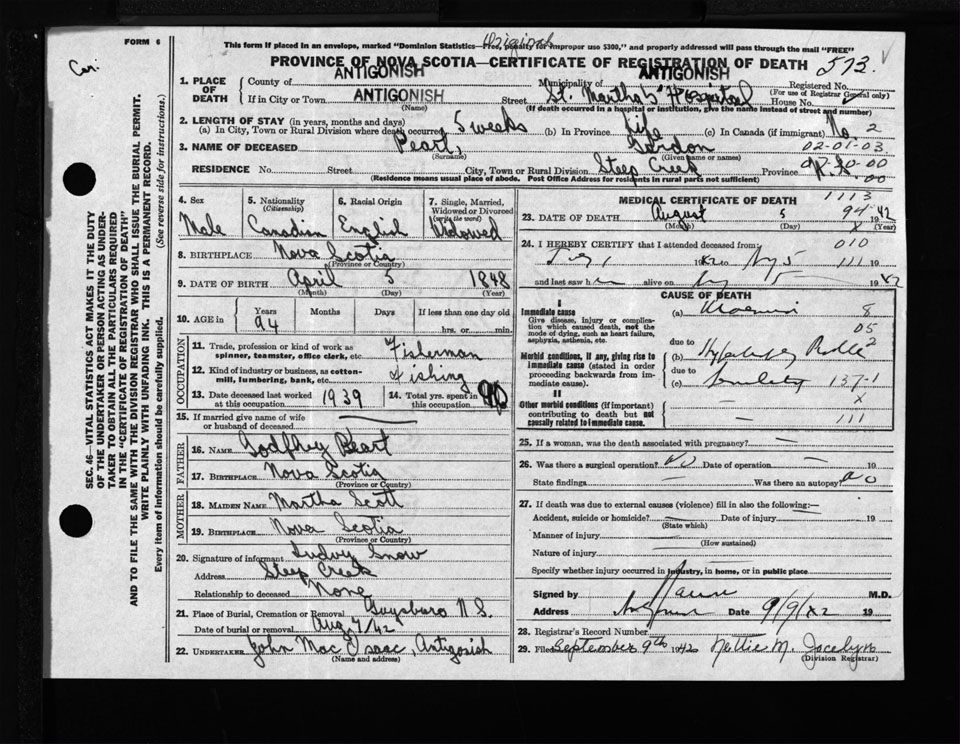 FORM 6
Original
This form if placed in an envelope, marked "Dominion Statistics—Free, penalty for improper use $300," and properly addressed will pass through the mail "FREE"
PROVINCE OF NOVA SCOTIA—CERTIFICATE OF REGISTRATION OF DEATH 573
1. PLACE OF DEATH County of ANTIGONISH Municipality of ANTIGONISH Registered No.
(For use of Registrar General only)
If in City or Town ANTIGONISH Street St. Martha's Hospital House No.
(Name) (If death occurred in a hospital or institution, give the name instead of street and number)
2. LENGTH OF STAY (in years, months and days)
(a) In City, Town or Rural Division where death occurred 5 weeks (b) In Province Life (c) In Canada (if immigrant) No. 2
3. NAME OF DECEASED Peart, Gordon 02-01-03
(Surname) (Given name or names)
RESIDENCE No. Street City, Town or Rural Division Steep Creek Province N.S.
(Residence means usual place of abode. Post Office Address for residents in rural parts not sufficient)
4. Sex Male
5. Nationality (Citizenship) Canadian
6. Racial Origin English
7. Single, Married, Widowed or Divorced (write the word) Widowed
8. BIRTHPLACE Nova Scotia
(Province or Country)
9. DATE OF BIRTH April 5 1848
(Month) (Day) (Year)
10. AGE in Years Months Days If less than one day old
94 hrs. or min.
OCCUPATION
11. Trade, profession or kind of work as spinner, teamster, office clerk, etc. Fisherman
12. Kind of industry or business, as cotton-mill, lumbering, bank, etc. Fishing
13. Date deceased last worked at this occupation 1939
14. Total yrs. spent in this occupation
15. If married give name of wife or husband of deceased —
FATHER
16. Name Godfrey Peart
17. Birthplace Nova Scotia
(Province or Country)
MOTHER
18. Maiden Name Martha Scott
19. Birthplace Nova Scotia
(Province or Country)
20. Signature of informant Ludvy Snow
Address Steep Creek
Relationship to deceased None
21. Place of Burial, Cremation or Removal Guysboro N S.
Date of burial or removal Aug 7/42
22. Undertaker John Mac Isaac, Antigonish
(Name and address)
MEDICAL CERTIFICATE OF DEATH 1113
23. DATE OF DEATH August 5 94 1942
(Month) (Day) (Year)
24. I HEREBY CERTIFY that I attended deceased from: 010
111
and last saw h alive on 5 1942
CAUSE OF DEATH
I
Immediate cause
Give disease, injury or complication which caused death, not the mode of dying, such as heart failure, asphyxia, asthenia, etc.
(a) 8
05
due to
Morbid conditions, if any, giving rise to immediate cause (stated in order proceeding backwards from immediate cause).
(b) 2
due to
(c) Senility 137-1
II
Other morbid conditions (if important) contributing to death but not causally related to immediate cause.
X
111
25. If a woman, was the death associated with pregnancy? —
26. Was there a surgical operation? No Date of operation — 19
State findings Was there an autopsy? No
27. If death was due to external causes (violence) fill in also the following:—
Accident, suicide or homicide? Date of injury 19
(State which)
Manner of injury
(How sustained)
Nature of injury
Specify whether injury occurred in industry, in home, or in public place
Signed by M.D.
Address Date 9/9/42 19
28. Registrar's Record Number
29. Filed September 9th 1942 Nettie M. Jocelyn
(Division Registrar)
SEC. 46—VITAL STATISTICS ACT MAKES IT THE DUTY OF THE UNDERTAKER OR PERSON ACTING AS UNDERTAKER TO OBTAIN ALL THE PARTICULARS REQUIRED IN THE "CERTIFICATE OF REGISTRATION OF DEATH" AND TO FILE THE SAME WITH THE DIVISION REGISTRAR WHO SHALL ISSUE THE BURIAL PERMIT.
WRITE PLAINLY WITH UNFADING INK. THIS IS A PERMANENT RECORD.
Every item of information should be carefully supplied. (See reverse side for instructions.)